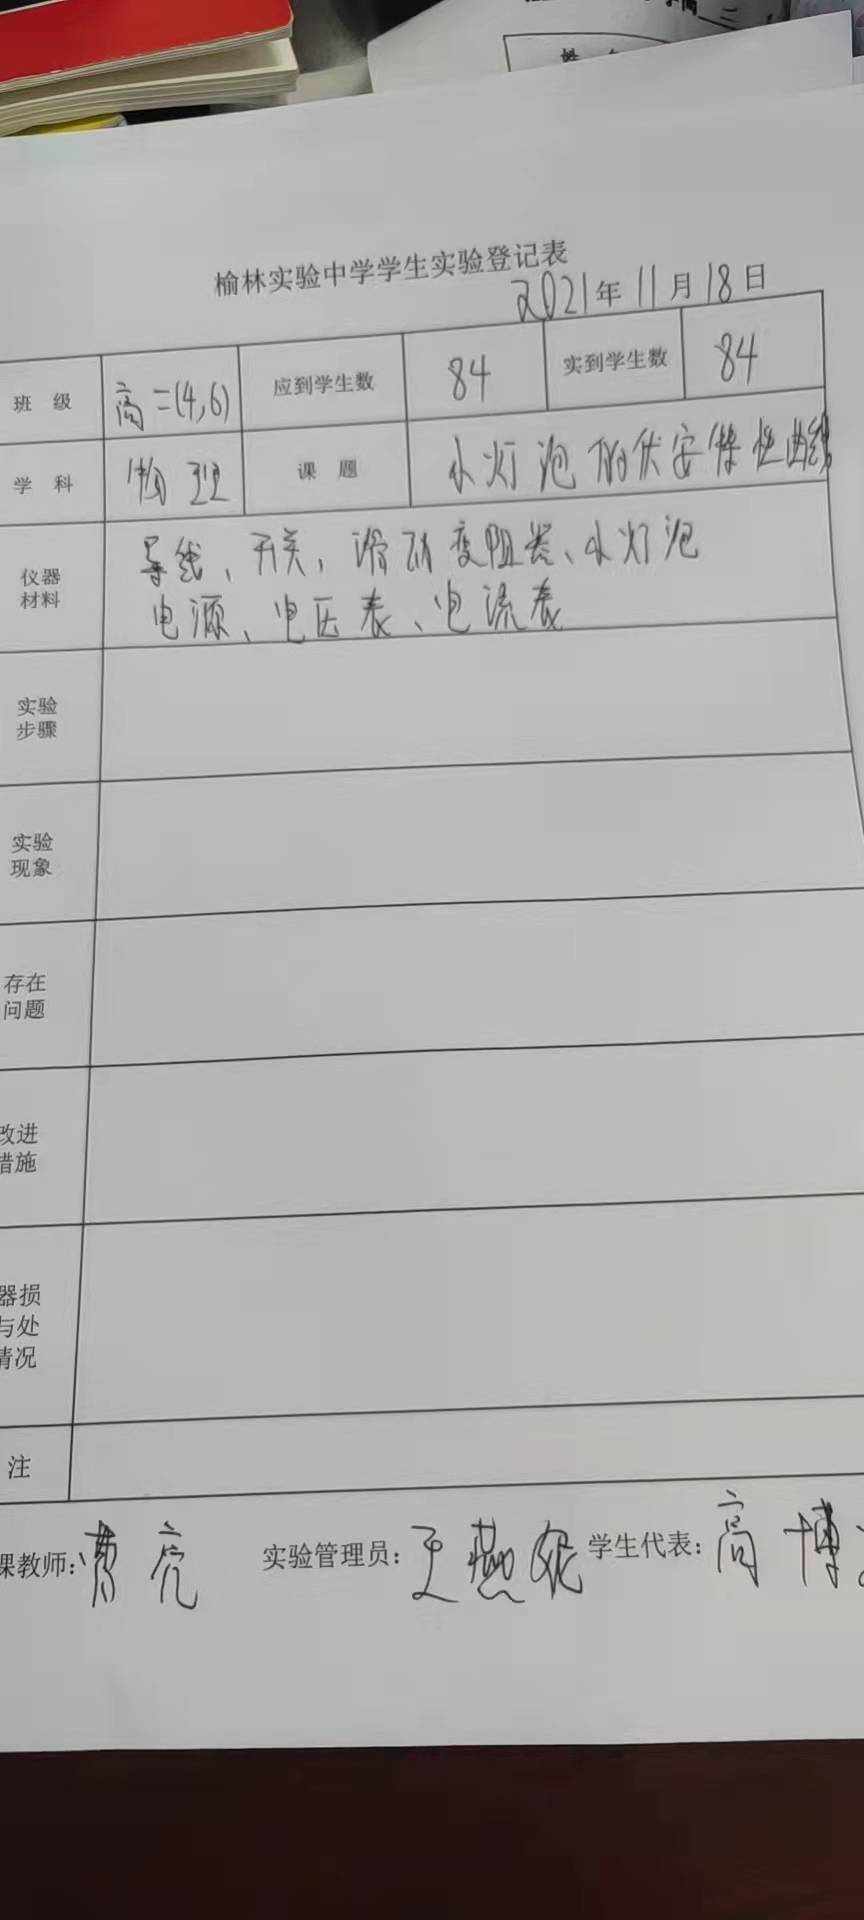 榆林实验中学学生实验登记表
2021年11月18日
班 级 高二(4,6) 应到学生数 84 实到学生数 84
学 科 物理 课 题 小灯泡的伏安特性曲线
仪器材料 导线、开关,滑动变阻器、小灯泡
电源、电压表、电流表
实验
步骤
实验
现象
存在
问题
改进
措施
器损
与处
情况
注
课教师: 曹亮 实验管理员: 王燕妮 学生代表: 高博